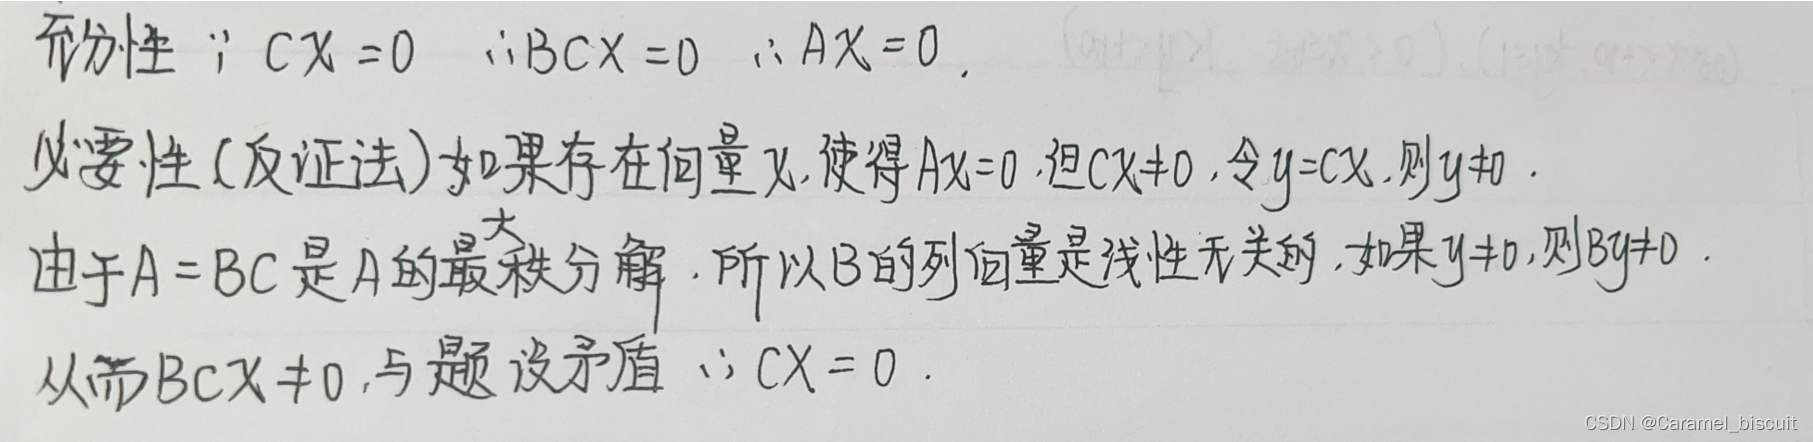 充分性 ∵ CX=0 ∴BCX=0 ∴AX=0.
必要性(反证法)如果存在向量X,使得AX=0,但CX≠0,令y=CX,则y≠0.
由于A=BC是A的最大秩分解.所以B的列向量是线性无关的,如果y≠0,则By≠0.
从而BCX≠0,与题设矛盾 ∴CX=0.
CSDN @Caramel_biscuit